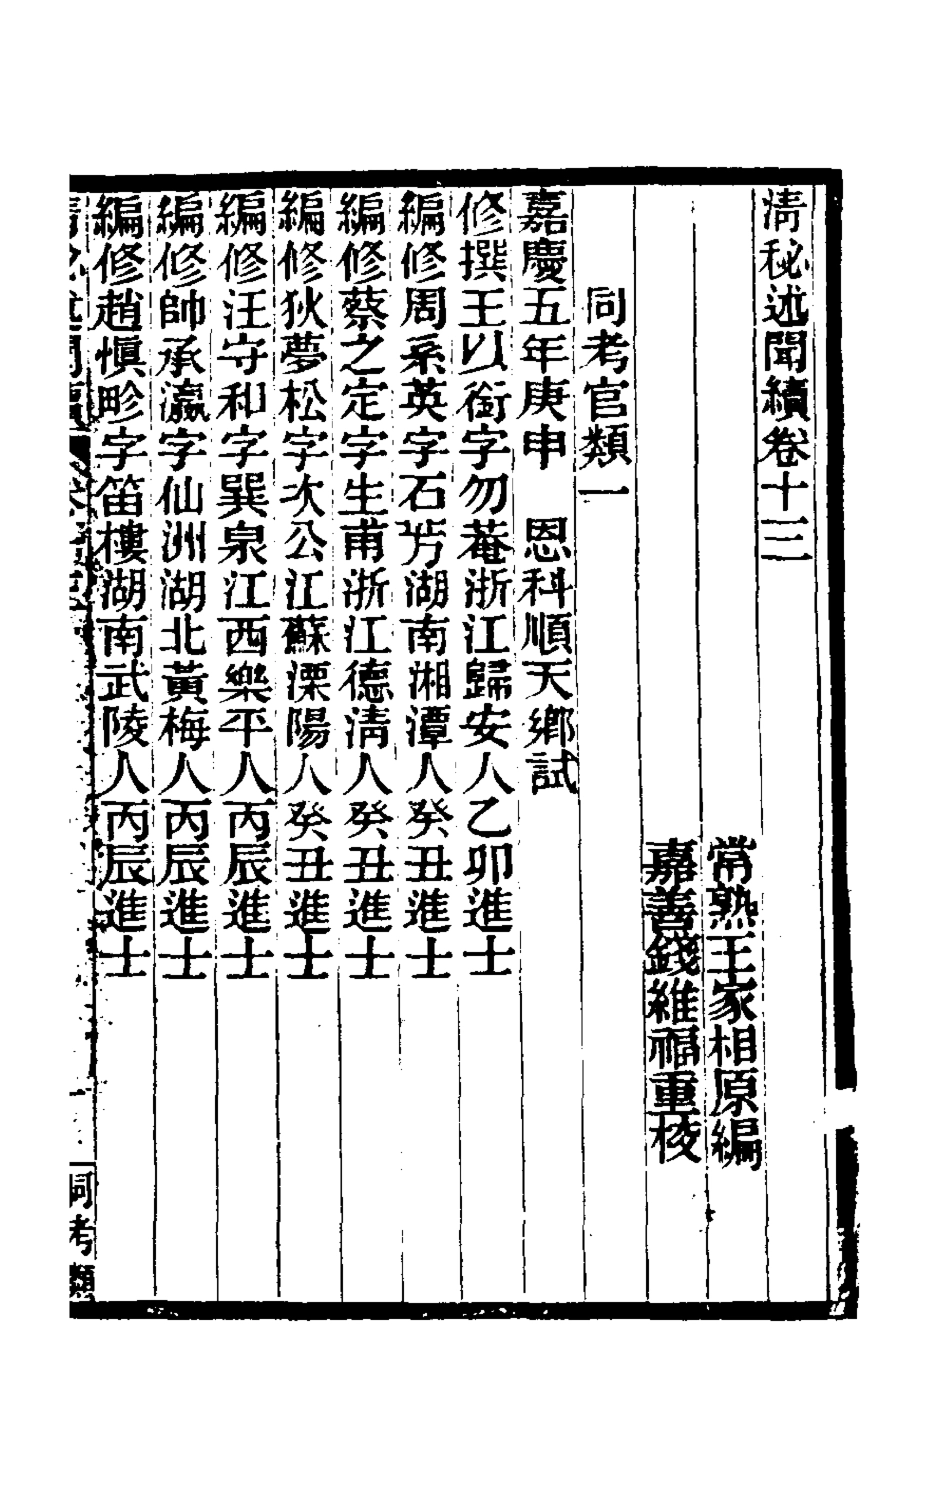 清秘述聞續卷十三
常熟王家相原編
嘉善錢維福重校
同考官類一
嘉慶五年庚申　恩科順天鄉試
修撰王以銜字勿菴浙江歸安人乙卯進士
編修周系英字石芳湖南湘潭人癸丑進士
編修蔡之定字生甫浙江德清人癸丑進士
編修狄夢松字次公江蘇溧陽人癸丑進士
編修汪守和字巽泉江西樂平人丙辰進士
編修帥承瀛字仙洲湖北黃梅人丙辰進士
編修趙愼畛字笛樓湖南武陵人丙辰進士
同考類